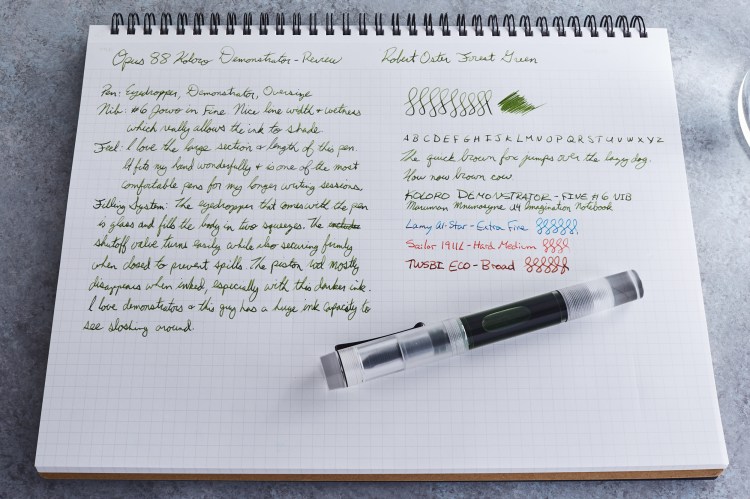 Opus 88 Koloro Demonstrator - Review
Pen: Eyedropper, Demonstrator, Oversize
Nib: #6 Jowo in Fine. Nice line width & wetness
which really allows the ink to shade.
Feel: I love the large section & length of this pen.
It fits my hand wonderfully & is one of the most
comfortable pens for my longer writing sessions.
Filling System: The eyedropper that comes with the pen
is glass and fills the body in two squeezes. The
shutoff valve turns easily while also securing firmly
when closed to prevent spills. The piston rod mostly
disappears when inked, especially with this darker ink.
I love demonstrators & this guy has a huge ink capacity to
see sloshing around.
Robert Oster Forest Green
A B C D E F G H I J K L M N O P Q R S T U V W X Y Z
The quick brown fox jumps over the lazy dog.
How now brown cow
KOLORO DEMONSTRATOR - FINE #6 NIB
Maruman Mnemosyne A4 Imagination Notebook
Lamy Al-Star - Extra Fine
Sailor 1911L - Hard Medium
TWSBI ECO - Broad